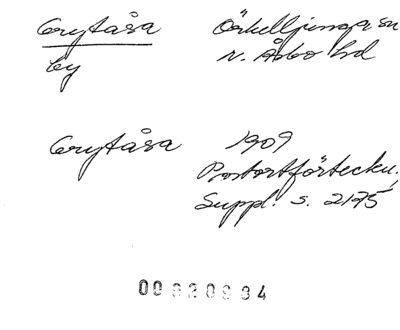 Grytåsa Örkelljunga sn
by N. Åsbo hd
Grytåsa 1909
Postortförteckn.
Suppl. s. 2175
00020904